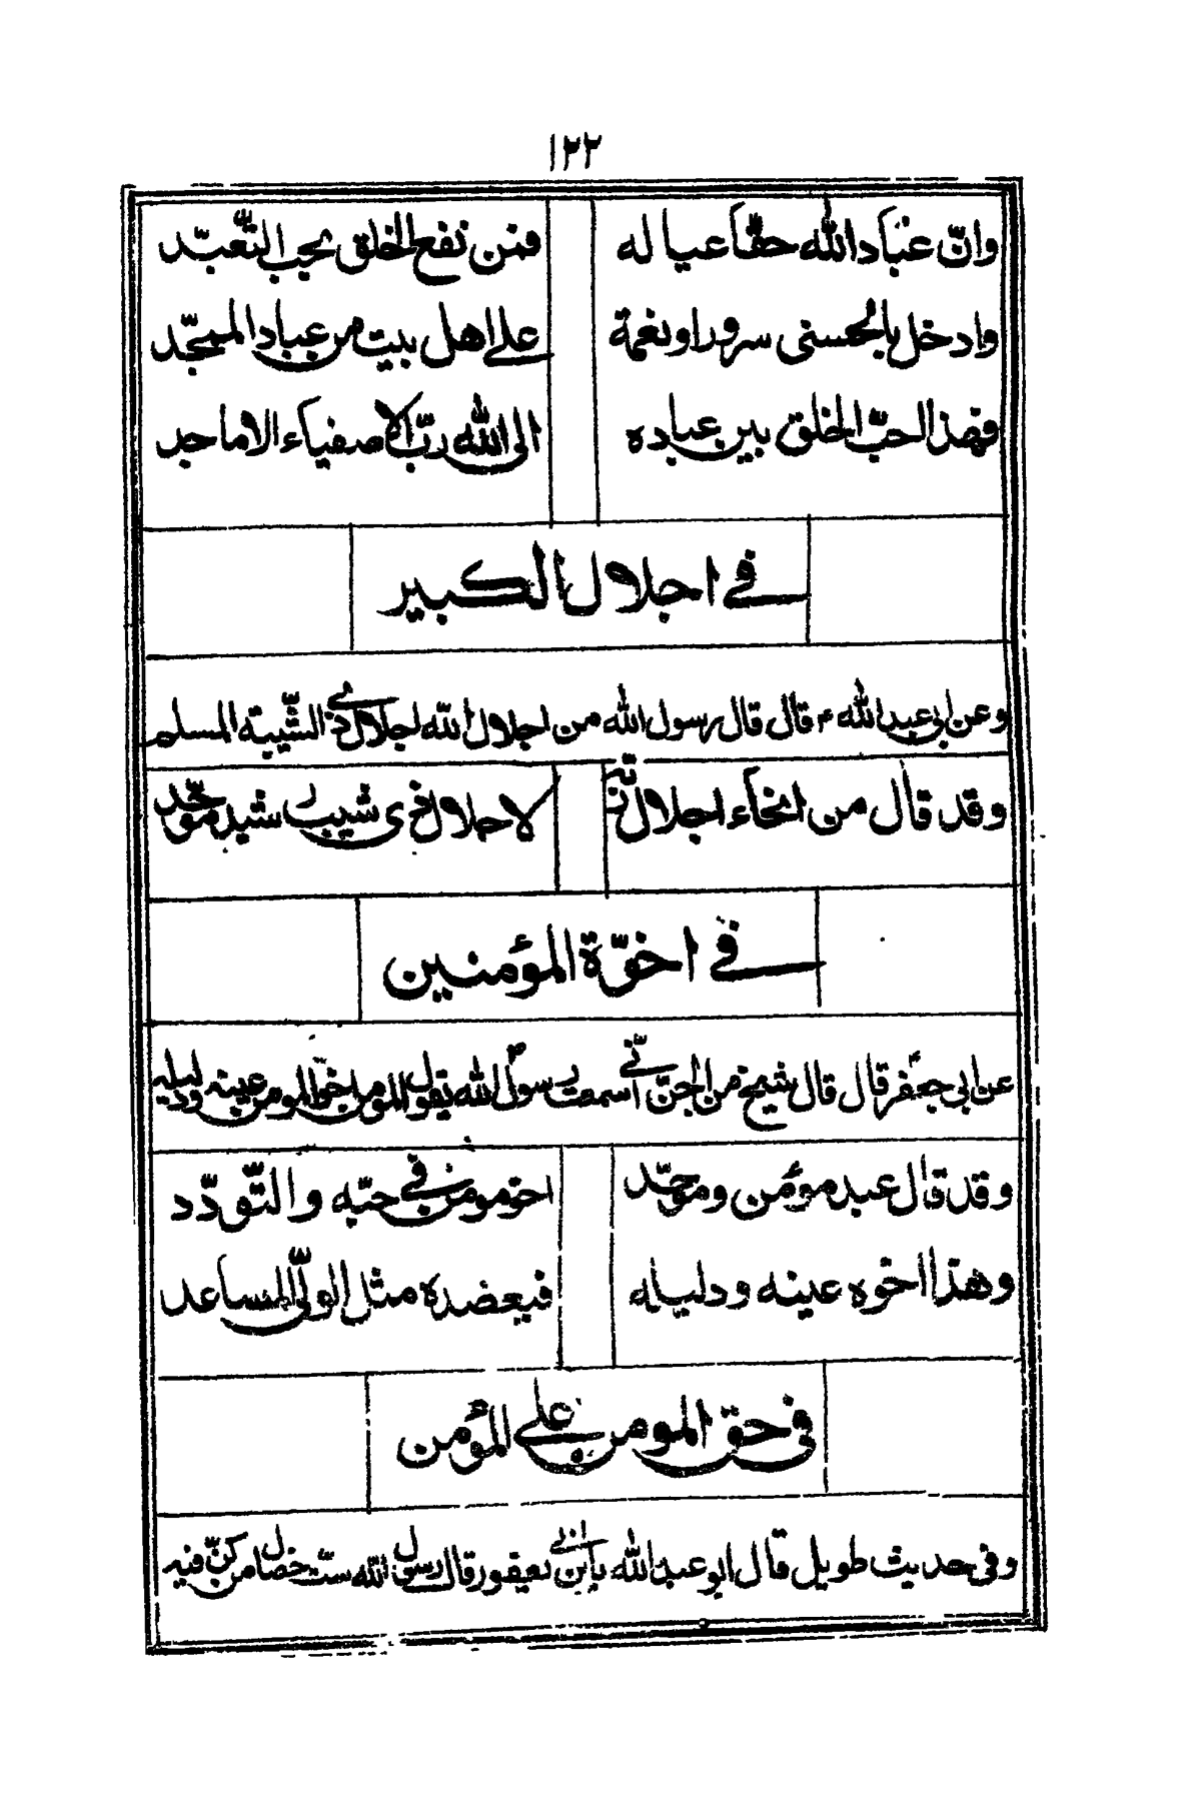 ١٢٢
وانّ عباد الله حقّا عياله فمن نفع الخلق بحب التّعبّد
وادخل بالحسنى سرورا ونغمة على اهل بيت من عباد الممجّد
فهذا الحبّ الخلق بين عباده الى الله ربّ الاصفياء الاماجد
في اجلال الكبير
وعن ابي عبد الله ء قال قال رسول الله من اجلال الله اجلال ذي الشّيبة المسلم
وقد قال من انحاء اجلال ربّه لاجلال ذي شيب رشيد موحّد
في اخوّة المؤمنين
عن ابي جعفر قال قال شيخ من الجنّ انّي سمعت رسول الله يقول المومن اخو المومن عينه ودليله
وقد قال عبد مؤمن وموحّد اخو مومن في حبّه والتّودّد
وهذا اخوه عينه ودليله فيعضده مثل الوليّ المساعد
في حق المومن على المؤمن
وفي حديث طويل قال ابو عبد الله يا ابن ابي يعفور قال رسول الله ستّ خصال من كنّ فيه